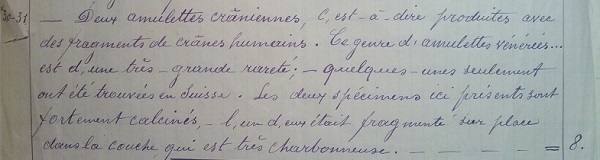 30-31
— Deux amulettes crâniennes, C, est-à-dire produites avec
des fragments de crânes humains. Ce genre d'amulettes vénérées...
est d, une très-grande rareté; — quelques-unes seulement
ont été trouvées en Suisse. Les deux spécimens ici présents sont
fortement calcinés, - l, un d, eux était fragmenté sur place
dans la couche qui est très charbonneuse. — — — = 8.